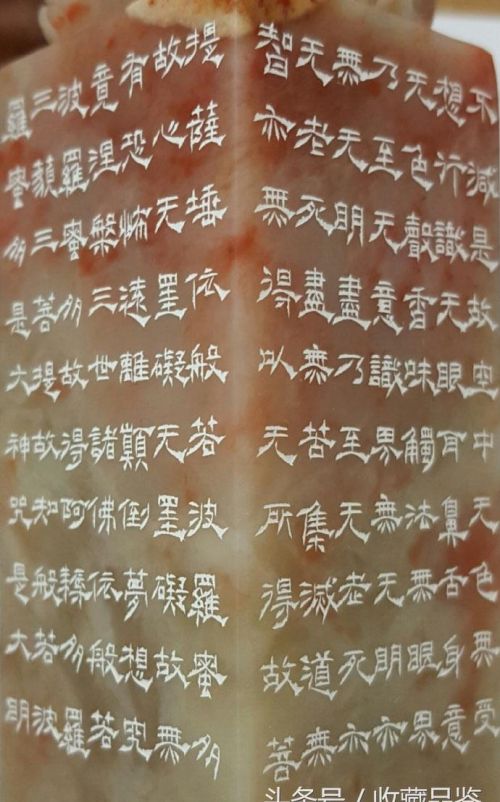 不減是故空中无色無受
想行識无眼耳鼻舌身意
无色聲香味觸法無眼界
乃至无意識界無无明亦
無无明盡乃至无老死亦
无老死盡無苦集滅道無
智亦無得以无所得故菩
提薩埵依般若波羅蜜多
故心无罣礙无罣礙故無
有恐怖遠離顛倒夢想究
竟涅槃三世諸佛依般若
波羅蜜多故得阿耨多羅
三藐三菩提故知般若波
羅蜜多是大神咒是大明
头条号 / 收藏品鉴